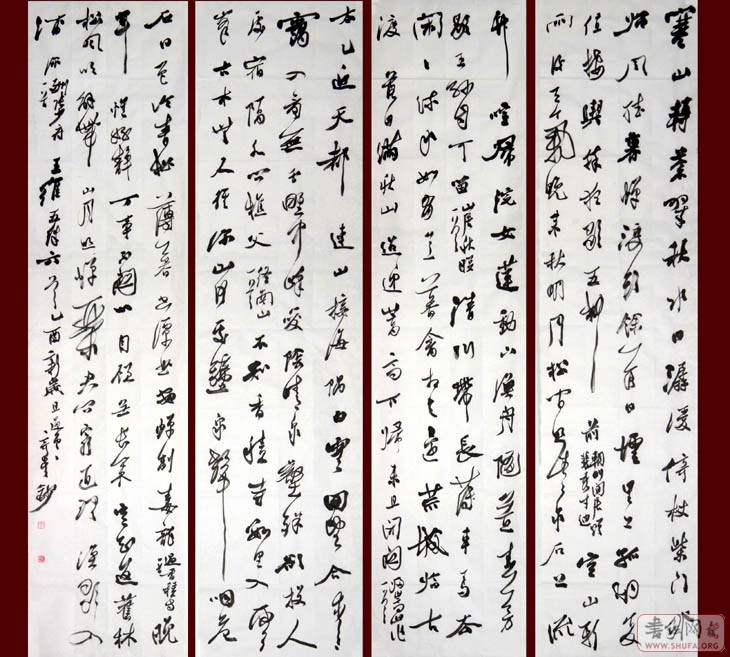 寒山轉蒼翠秋水日潺湲倚杖柴门外
临风听暮蝉渡头餘落日墟里上孤烟复
值接輿醉狂歌五柳前 輞川闲居赠裴秀才迪 空山新
雨后天氣晚来秋明月松间照清泉石上流
竹喧歸浣女蓮動下漁舟随意春芳
歇王孙自可留 山居秋暝 清川帶長薄车馬去
闲闲流水如有意暮禽相与还荒城临古
渡落日满秋山迢递嵩高下歸来且闭关 归嵩山作
太乙近天都連山接海隅白雲回望合青
靄入看無分野中峰变陰晴众壑殊欲投人
處宿隔水问樵父 终南山一首 不知香積寺数里入雲
峰古木无人径深山何處鐘泉聲咽危
石日色冷青松薄暮空潭曲安禅制毒龍 過香積寺 晚
年惟好静万事不關心自顾無長策空知返舊林
松风吹解带山月照弹琴君问窮通理漁歌入
浦深 酬张少府一首 王维五律六首己酉新歲
书法网
WWW.SHUFA.ORG